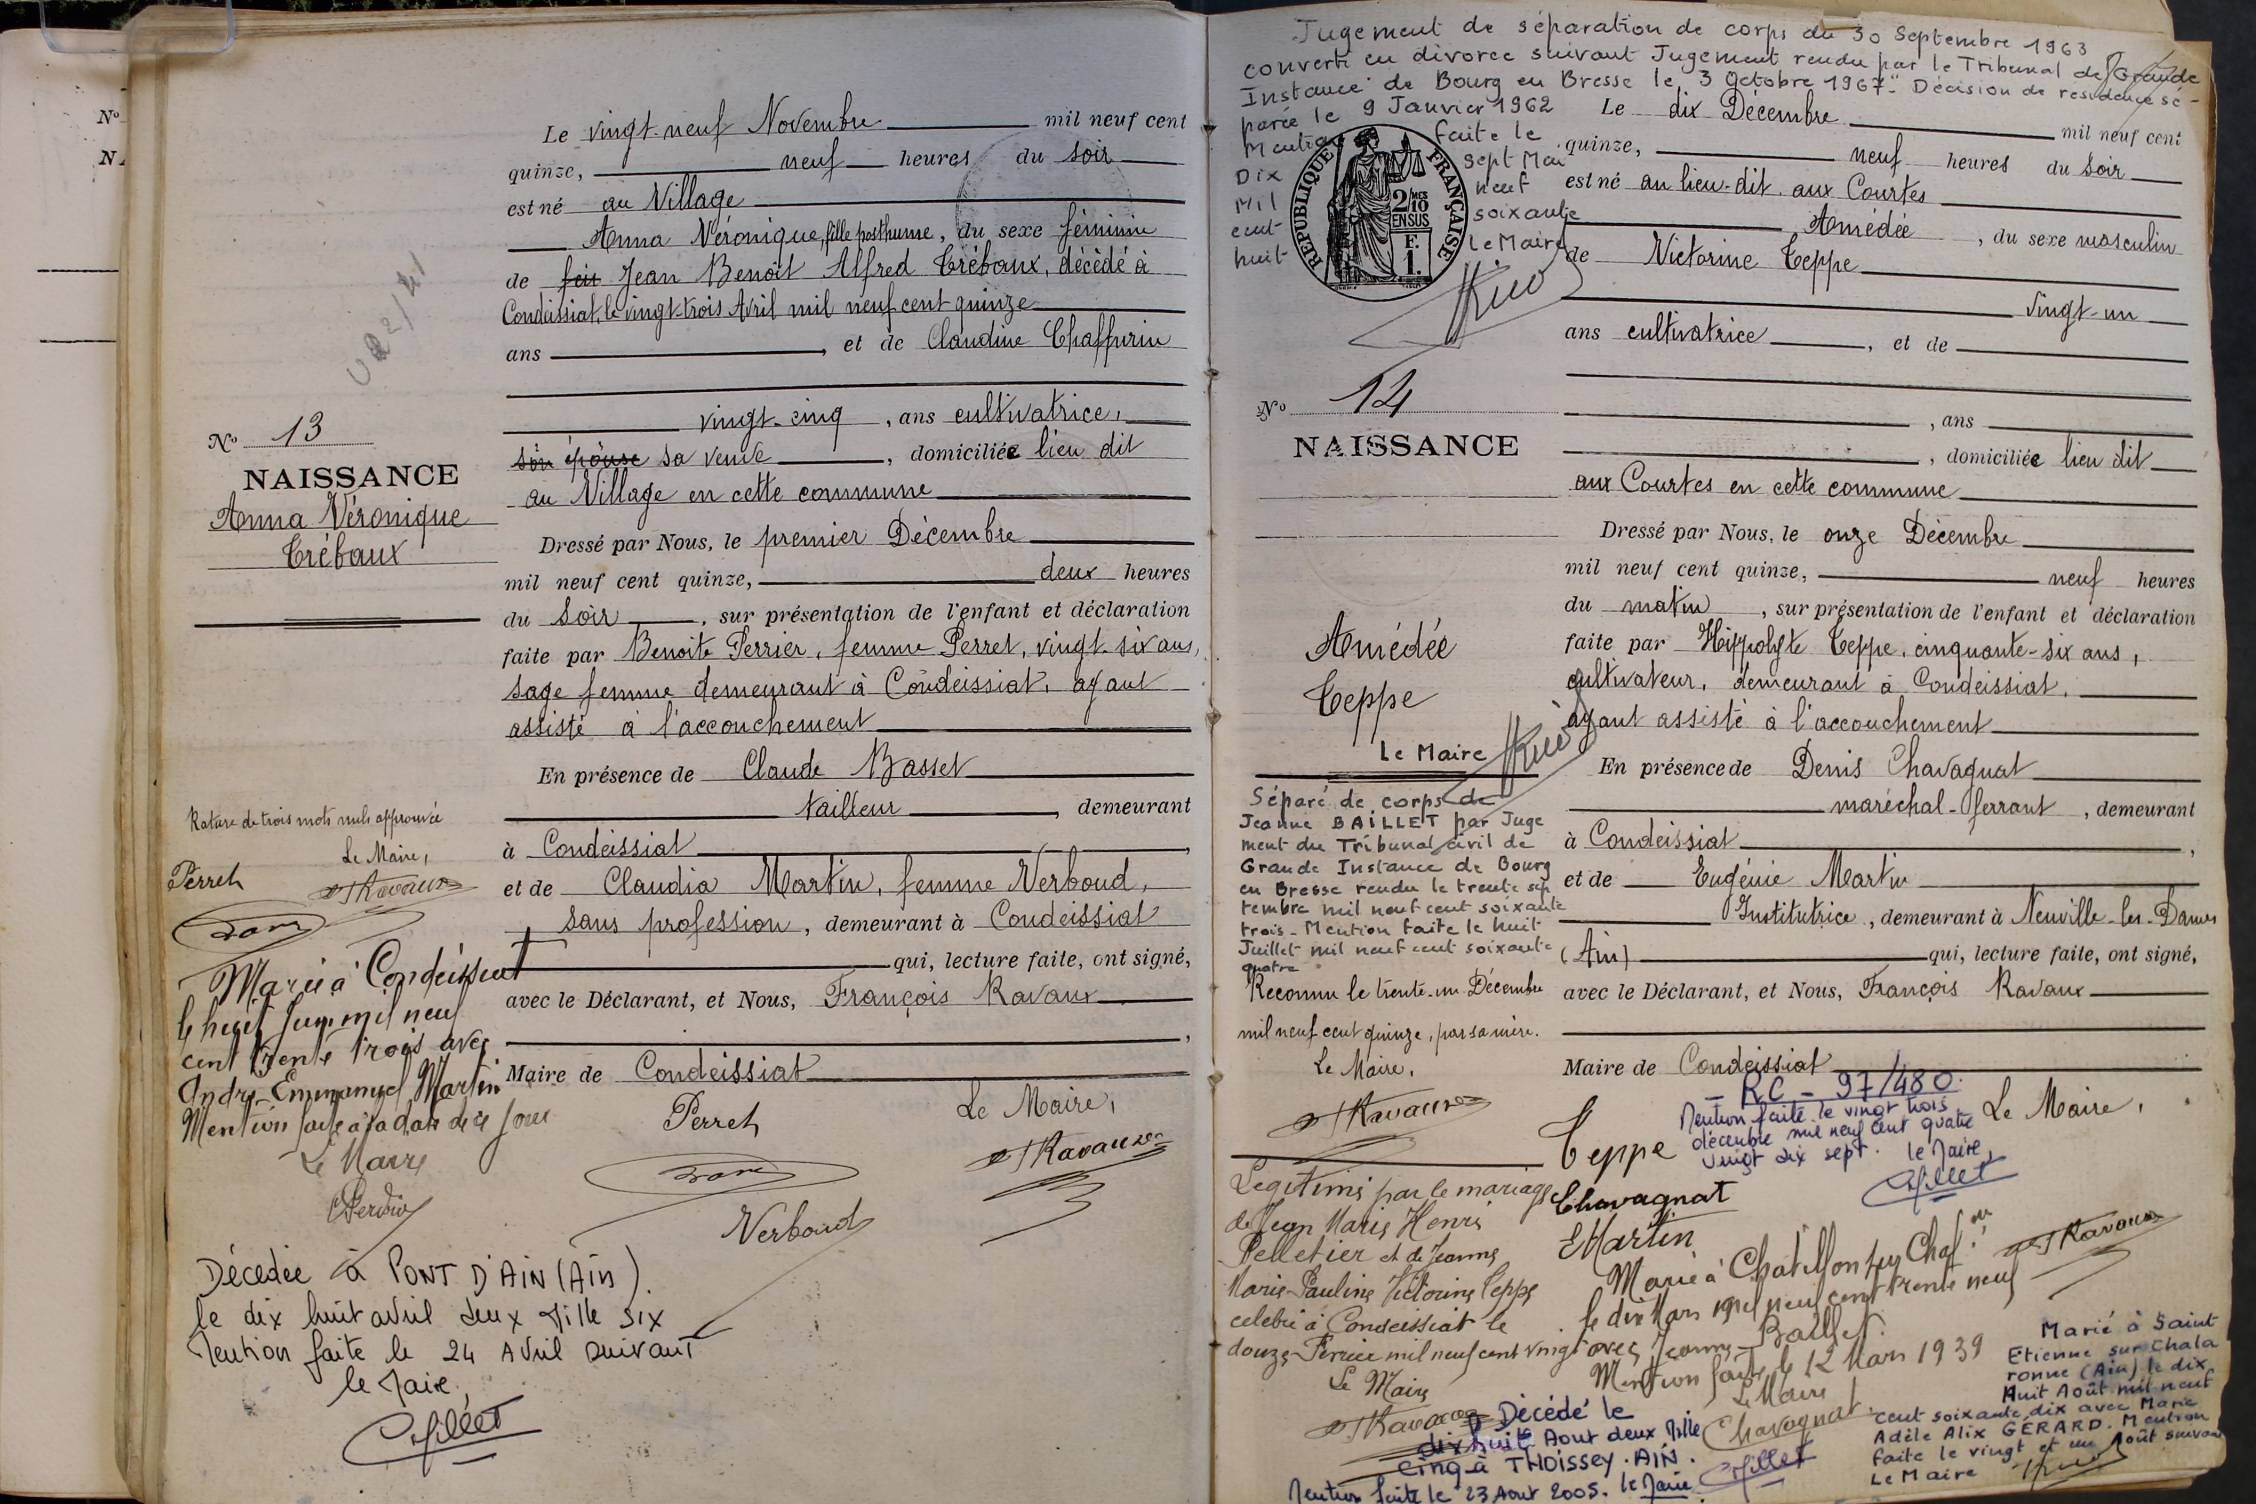 Le vingt-neuf Novembre mil neuf cent
quinze, neuf heures du soir
est né au Village
Anna Véronique, fille posthume, du sexe féminin
de feu Jean Benoît Alfred Trébaux, décédé à
Condeissiat, le vingt-trois Avril mil neuf cent quinze
ans , et de Claudine Chaffurin
vingt-cinq , ans cultivatrice,
son épouse sa veuve , domiciliée lieu dit
au Village en cette commune
Dressé par Nous, le premier Décembre
mil neuf cent quinze, deux heures
du soir , sur présentation de l'enfant et déclaration
faite par Benoite Perrier, femme Perret, vingt-six ans,
sage femme demeurant à Condeissiat, ayant
assisté à l'accouchement
En présence de Claude Basset
tailleur , demeurant
à Condeissiat ,
et de Claudia Martin, femme Verboud,
sans profession, demeurant à Condeissiat
qui, lecture faite, ont signé,
avec le Déclarant, et Nous, François Ravaux
,
Maire de Condeissiat
Perret Le Maire,
Ravaux
Verboud
Nº 13
NAISSANCE
Anna Véronique
Trébaux
Rature de trois mots nuls approuvée
Le Maire,
Perret Ravaux
Marié à Condeissiat
le huit Juin mil neuf
cent trente trois avec
André Emmanuel Martin
Mention faite à la date de ce jour
Le Maire
Décédée à PONT D'AIN (AIN)
le dix huit avril deux Mille six
Mention faite le 24 Avril suivant
le Maire,
Nº
Jugement de séparation de corps du 30 Septembre 1963
converti en divorce suivant Jugement rendu par le Tribunal de Grande
Instance de Bourg en Bresse le 3 Octobre 1967. Décision de résidence sé-
parée le 9 Janvier 1962
Mention faite le
Dix sept Mai
Mil neuf
cent soixante
huit Le Maire
RÉPUBLIQUE FRANÇAISE
2/10
EN SUS
F.
1.
Le dix Décembre mil neuf cent
quinze, neuf heures du soir
est né au lieu-dit aux Courtes
, Amédée , du sexe masculin
de Victorine Teppe
vingt-un
ans cultivatrice , et de
, ans
, domiciliée lieu dit
aux Courtes en cette commune
Dressé par Nous, le onze Décembre
mil neuf cent quinze, neuf heures
du matin , sur présentation de l'enfant et déclaration
faite par Hippolyte Teppe, cinquante-six ans,
cultivateur, demeurant à Condeissiat,
ayant assisté à l'accouchement
En présence de Denis Chavagnat
maréchal-ferrant , demeurant
à Condeissiat ,
et de Eugénie Martin
Institutrice, demeurant à Neuville-les-Dames
(Ain) qui, lecture faite, ont signé,
avec le Déclarant, et Nous, François Ravaux
Maire de Condeissiat
Le Maire,
Teppe
Chavagnat
EMartin
Ravaux
RC - 97/480
Mention faite le vingt trois
décembre mil neuf cent quatre
vingt dix sept. le Maire,
Nº 14
NAISSANCE
Amédée
Teppe
Le Maire
Séparé de corps de
Jeanne BAILLET par Juge
ment du Tribunal civil de
Grande Instance de Bourg
en Bresse rendu le trente sep
tembre mil neuf cent soixante
trois - Mention faite le huit
Juillet mil neuf cent soixante
quatre
Reconnu le trente-un Décembre
mil neuf cent quinze, par sa mère.
Le Maire,
Ravaux
Légitimé par le mariage
de Jean Marie Henri
Pelletier et de Jeanne
Marie-Pauline Victorine Teppe
célébré à Condeissiat le
douze Février mil neuf cent vingt
Le Maire
Ravaux
Marié à Chatillon sur Chal.
le dix Mars mil neuf cent trente neuf
avec Jeanne Baillet.
Mention faite le 12 Mars 1939
Le Maire
Chavagnat
Décédé le
dix huit Aout deux Mille
cinq à THOISSEY. AIN.
Mention faite le 23 Aout 2005. le Maire
Marié à Saint
Etienne sur Chala
ronne (Ain) le dix
Huit Août mil neuf
cent soixante dix avec Marie
Adèle Alix GERARD. Mention
faite le vingt et un Août suivant
Le Maire